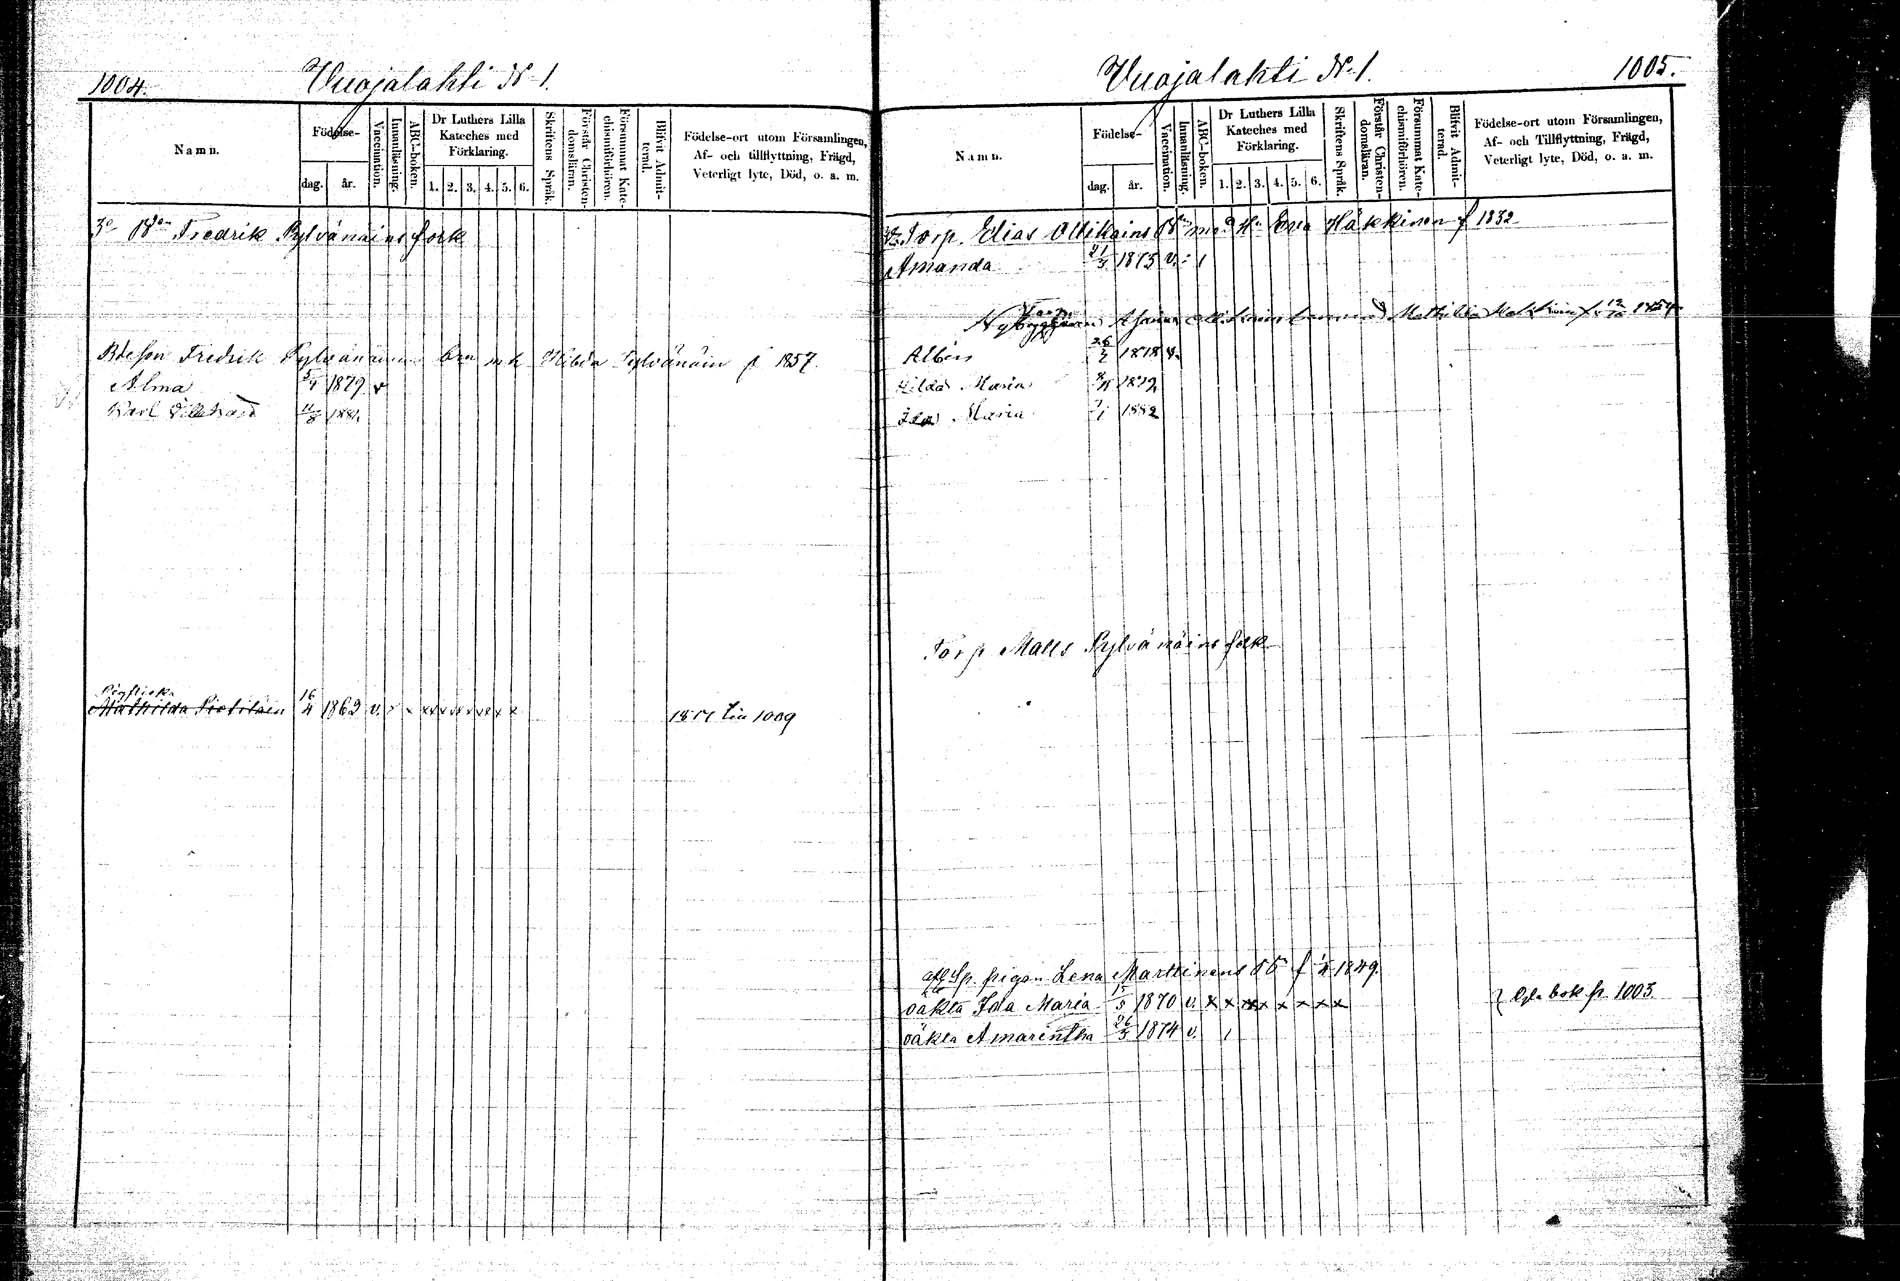 1004. Vuojalahti N 1.
Namn.
Födelse-
dag. år.
Vaccination.
Innanläsning.
ABC-boken.
Dr Luthers Lilla
Kateches med
Förklaring.
1. 2. 3. 4. 5. 6.
Skriftens Språk.
Förstår Christen-
domsläran.
Försummat Kate-
chismiförhören.
Blifvit Admit-
terad.
Födelse-ort utom Församlingen,
Af- och tillflyttning, Frägd,
Veterligt lyte, Död, o. a. m.
Fredrik Pylvänäins folk
Fredrik Pylvänäinen m h Pylvänäin f 1857.
Alma 5/4 1879 v
Karl 11/8 1881.
Mathilda 16/4 1862 v. x x x x x x x
1009
Vuojalahti N 1. 1005.
Namn.
Födelse-
dag. år.
Vaccination.
Innanläsning.
ABC-boken.
Dr Luthers Lilla
Kateches med
Förklaring.
1. 2. 3. 4. 5. 6.
Skriftens Språk.
Förstår Christen-
domsläran.
Försummat Kate-
chismiförhören.
Blifvit Admit-
terad.
Födelse-ort utom Församlingen,
Af- och Tillflyttning, Frägd,
Veterligt lyte, Död, o. a. m.
Torp. Elias Ollikains med Hu Eva Häkkinen f 1832
Amanda 21/3 1875 v.
Torp.
Mathilda
Albin 1878 v.
Hilda Maria 1879
Ida Maria 7/1 1882
Torp Matts Pylvänäins folk
Sp. pigan Lena Marttinens f 1849.
oäkta Ida Maria 15/5 1870 v. x x x x x x x x bok p. 1003.
oäkta Amarintha 26/3 1874 v.